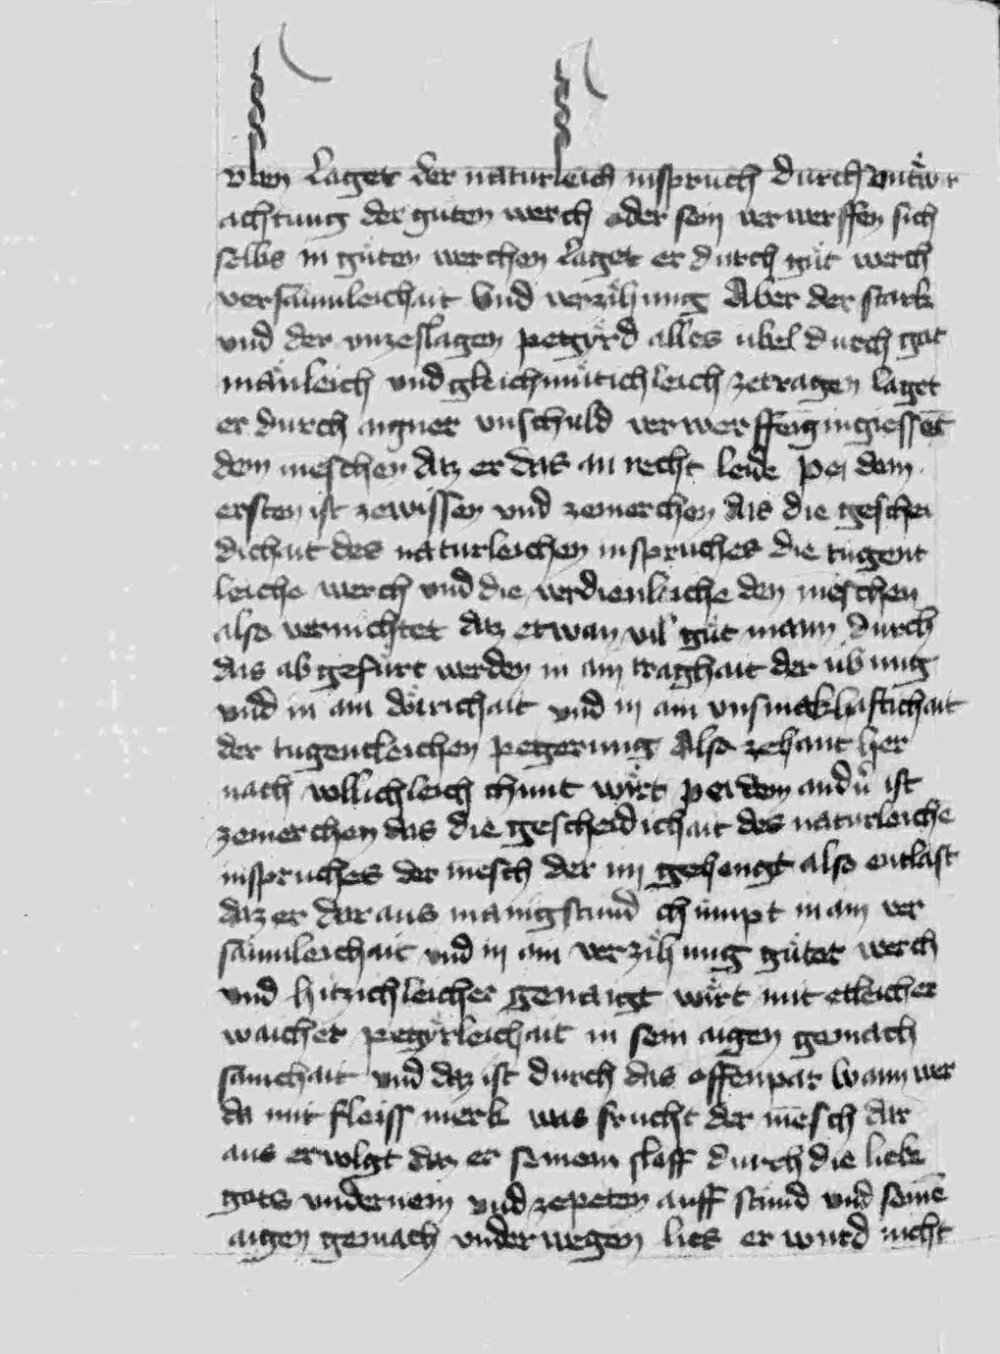 vben laget der naturleich inspruch durch vntwͤr
achtung der guten werch oder sein verwerffen sich
selbs in guͤten werchen laget er durch guͤt werch
versaumleichait vnd verzihung Aber der stark
vnd der vnzeslagen pegyrd alles ubel durch got
mänleich vnd gleichmuͤtichleich zetragen laget
er durch aigner vnschuld verwerffen ingiessēt
dem meschen daz er das an recht leide pei dem
ersten ist zewissen vnd zemerchen das die geschei
dichait des naturleichen inspruches die tugent
leiche werch vnd die verdienleiche den meschen
also vernichtet daz etwan vil guͤt mann durch
das ab gefuͤrt werden in ain traghait der ubung
vnd in ain doͤrichait vnd in ain vnsmekhaftichait
der tugentleichen pegerung Also zehant her
nach vollichleich chunt wirt pei dem andn̄ ist
zemerchen das die gescheidichait des naturleiche
inspruches der mēsch der im gehengt also entlast
daz er dar aus manigstund chumpt in ain ver
saumleichait vnd in ain verzihung guͤter werch
vnd hitzichleicher genaigt wirt mit etleicher
waicher pegyrleichait in sein aigen gemach
samchait vnd daz ist durch das offenpar wann wer
da mit fleiss merk was frucht der mēsch dar
aus ervolgt daz er seinem slaff durch die lieb
gots vndernem vnd zepeten auff stuͤnd vnd seinē
aigen gemach vnderwegen lies er wurd nicht